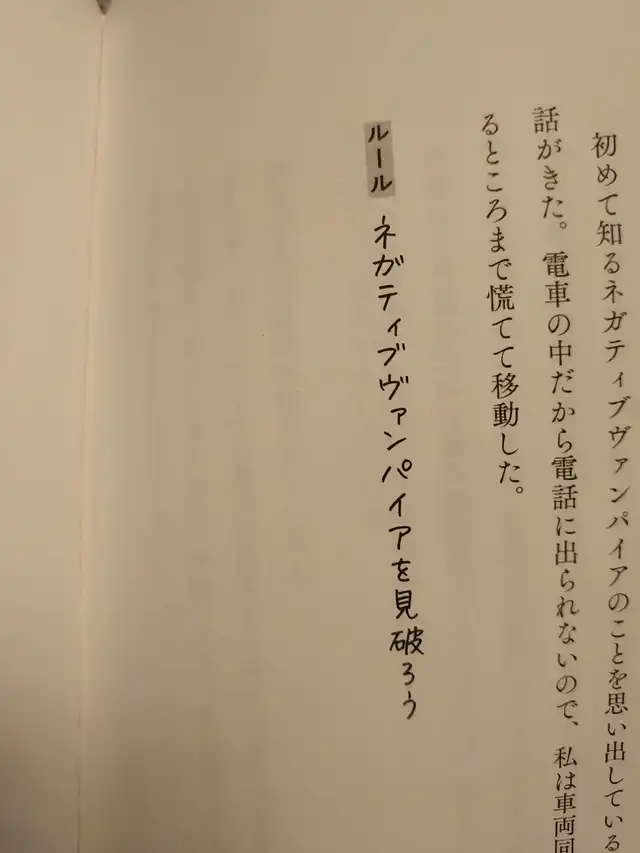 初めて知るネガティブヴァンパイアのことを思い出している
話がきた。電車の中だから電話に出られないので、私は車両同
るところまで慌てて移動した。
ルール ネガティブヴァンパイアを見破ろう